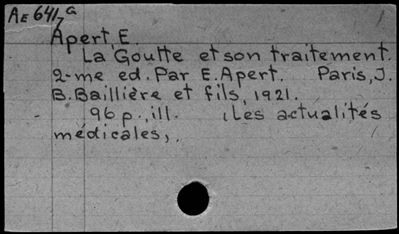 AE641/G
Apert E.
La Goutte et son traitement.
2-me ed. Par E. Apert. Paris, J.
B. Baillière et fils, 1921.
96 p., ill. (Les actualités
médicales,.